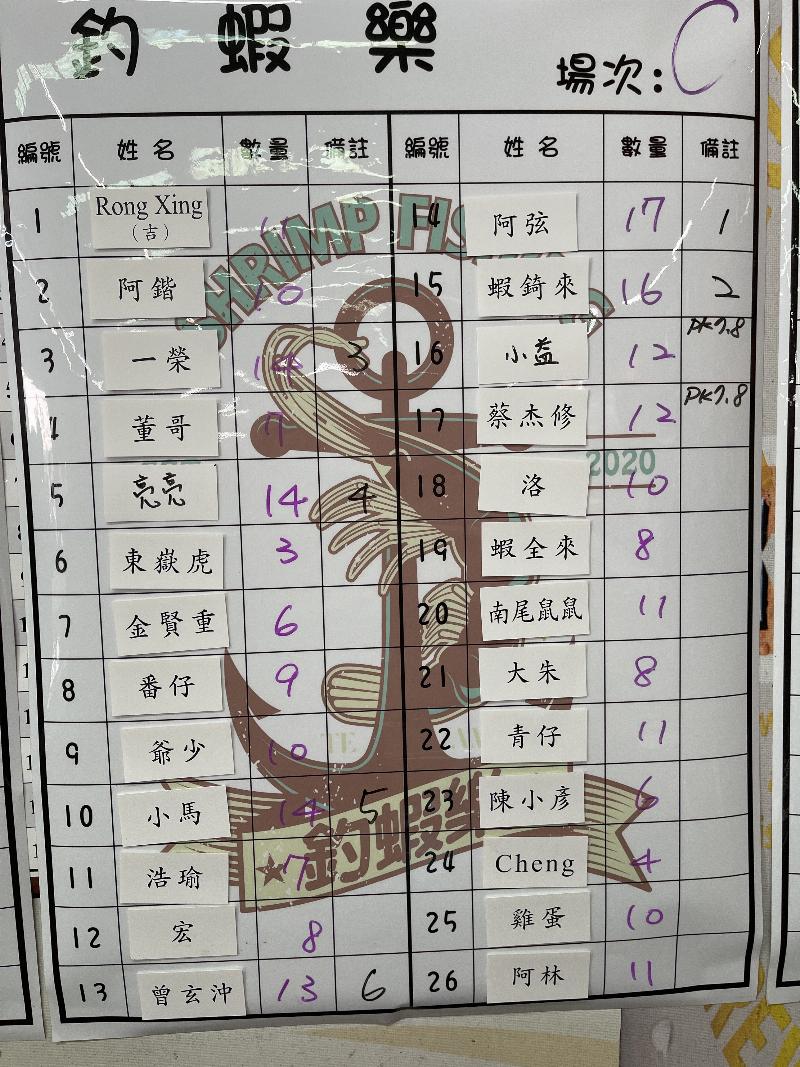 釣蝦樂
場次: C
編號 姓名 數量 備註 編號 姓名 數量 備註
1 Rong Xing (吉) 14 阿弦 17 1
2 阿鍇 10 15 蝦錡來 16 2
3 一榮 14 3 16 小益 12 PK7.8
4 董哥 7 17 蔡杰修 12 PK7.8
5 亮亮 14 4 18 洛 10
6 東嶽虎 3 19 蝦全來 8
7 金賢重 6 20 南尾鼠鼠 11
8 番仔 9 21 大朱 8
9 爺少 10 22 青仔 11
10 小馬 14 5 23 陳小彥 6
11 浩瑜 7 24 Cheng 4
12 宏 8 25 雞蛋 10
13 曾玄沖 13 6 26 阿林 11
SHRIMP
2020
釣蝦樂